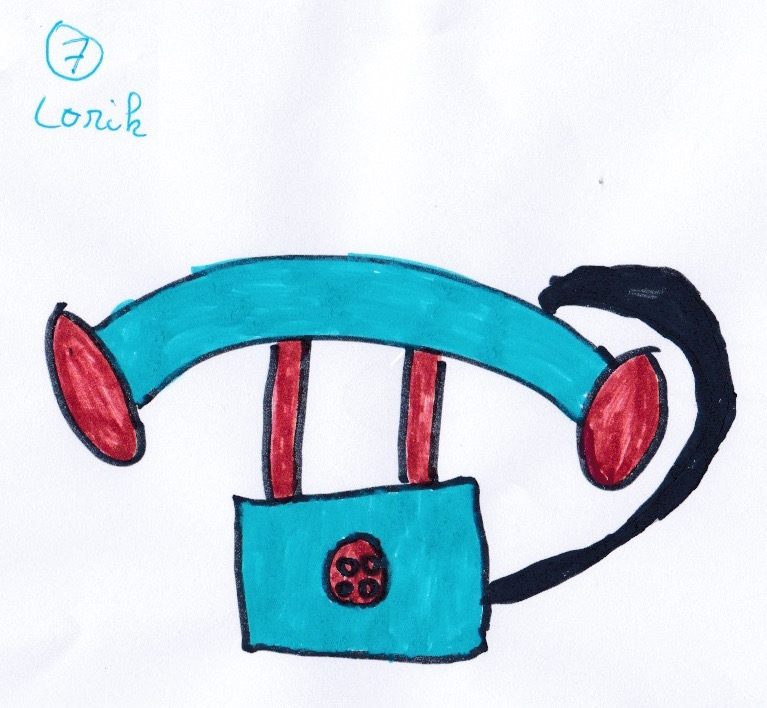 7
Lorik